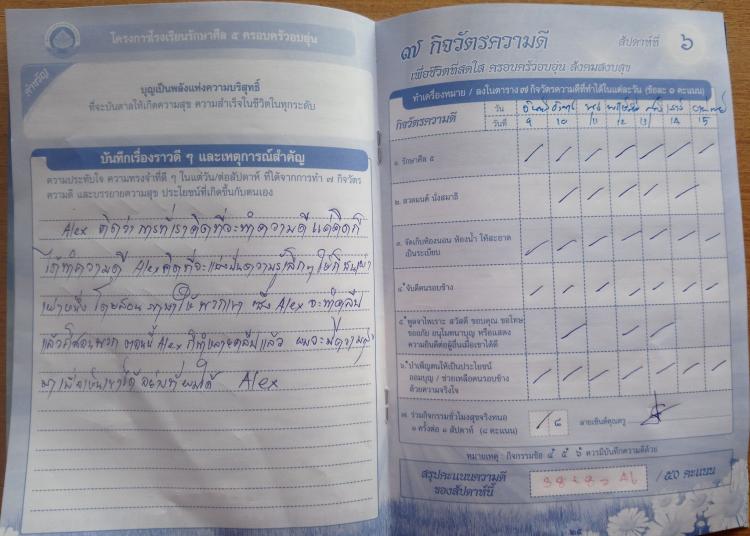 โครงการโรงเรียนรักษาศีล ๕ ครอบครัวอบอุ่น
คำขวัญ
บุญเป็นพลังแห่งความบริสุทธิ์
ที่จะบันดาลให้เกิดความสุข ความสำเร็จในชีวิตในทุกระดับ
บันทึกเรื่องราวดี ๆ และเหตุการณ์สำคัญ
ความประทับใจ ความทรงจำที่ดี ๆ ในแต่วัน/ต่อสัปดาห์ ที่ได้จากการทำ ๗ กิจวัตร
ความดี และบรรยายความสุข ประโยชน์ที่เกิดขึ้นกับตนเอง
Alex คิดว่าการที่เราคิดที่จะทำความดี แค่คิดก็
ได้ทำความดี Alex คิดที่จะแบ่งปันความรู้เล็กๆ ให้กับ
โดยสอน ภาษาให้ พวกเขา ซึ่ง Alex จะทำคลิป
แล้ว ตอนนี้ Alex ก็ทำ คลิปแล้ว ผมจะ
Alex
๗ กิจวัตรความดี สัปดาห์ที่ ๖
เพื่อชีวิตที่สดใส ครอบครัวอบอุ่น สังคมสงบสุข
ทำเครื่องหมาย / ลงในตาราง ๗ กิจวัตรความดีที่ทำได้ในแต่ละวัน (ข้อละ ๑ คะแนน)
กิจวัตรความดี
วัน จันทร์ อังคาร พุธ พฤหัส ศุกร์ เสาร์ อาทิตย์
วันที่ 9 10 11 12 13 14 15
๑. รักษาศีล ๕ / / / / / / /
๒. สวดมนต์ นั่งสมาธิ / / / / /
๓. จัดเก็บห้องนอน ห้องน้ำ ให้สะอาด
เป็นระเบียบ / / / / / / /
๔. จับดีคนรอบข้าง / / / / / / /
๕. พูดจาไพเราะ สวัสดี ขอบคุณ ขอโทษ
ขออภัย อนุโมทนาบุญ หรือแสดง
ความยินดีต่อผู้อื่นเมื่อเขาได้ดี / / /
๖. บำเพ็ญตนให้เป็นประโยชน์
ออมบุญ / ช่วยเหลือคนรอบข้าง
ด้วยความจริงใจ / / / / / / /
๗. ร่วมกิจกรรมชั่วโมงสุขจริงหนอ
๑ ครั้งต่อ ๑ สัปดาห์ (๘ คะแนน) / ๘ ลายเซ็นต์คุณครู
หมายเหตุ : กิจกรรมข้อ ๔ ๕ ๖ ควรมีบันทึกความดีด้วย
สรุปคะแนนความดี
ของสัปดาห์นี้ / ๕๐ คะแนน
๒๕